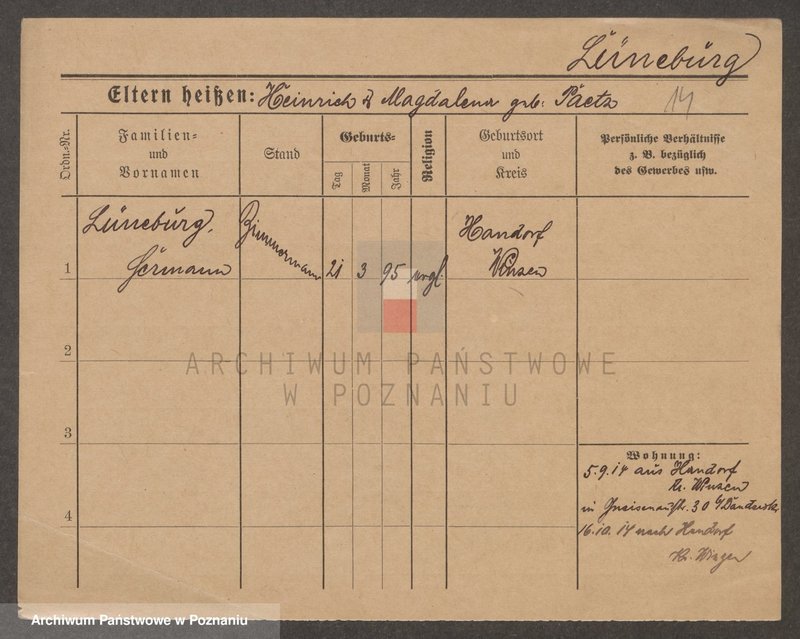 Lüneburg
Eltern heißen: Heinrich & Magdalena geb. Paetz 14
Ordn.-Nr.
Familien-
und
Vornamen
Stand
Geburts-
Tag
Monat
Jahr
Religion
Geburtsort
und
Kreis
Persönliche Verhältnisse
z. B. bezüglich
des Gewerbes usw.
1
Lüneburg,
Hermann
Zimmermann
21 3 95 evgl.
Handorf
Winsen
2
3
4
Wohnung:
5.9.14 aus Handorf
Kr. Winsen
in Gneisenaustr. 30
16.10.14 nach Handorf
Kr. Winsen
ARCHIWUM PAŃSTWOWE
W POZNANIU
Archiwum Państwowe w Poznaniu